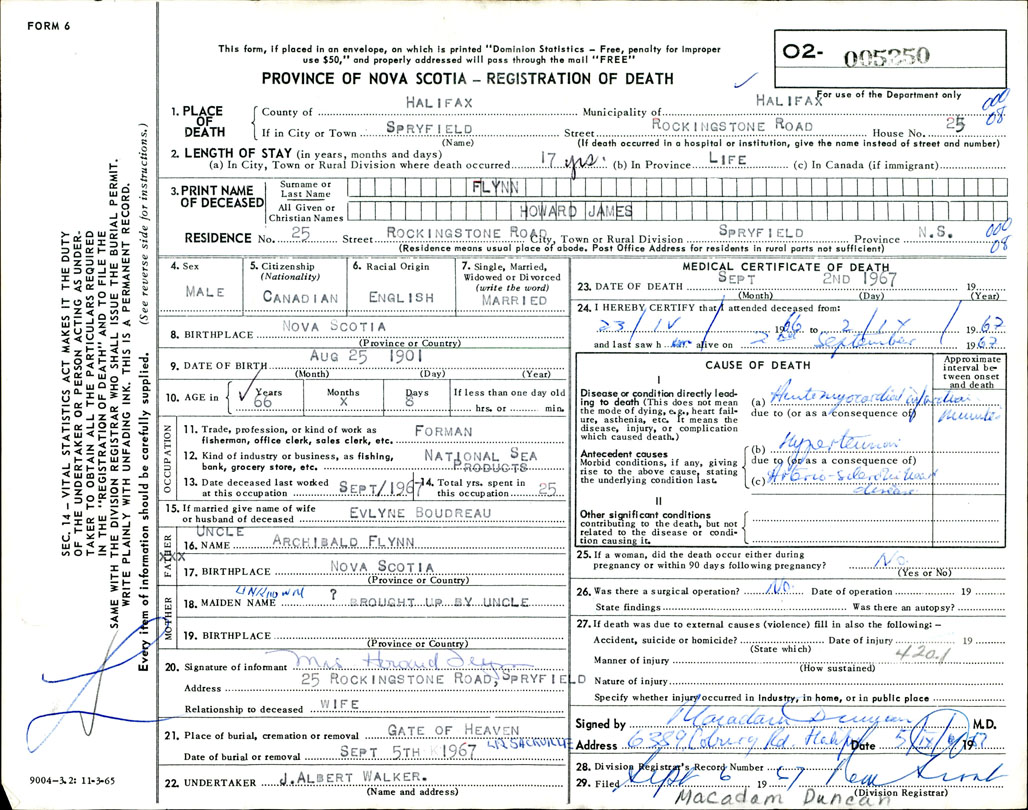 FORM 6
This form, if placed in an envelope, on which is printed "Dominion Statistics – Free, penalty for improper
use $50," and properly addressed will pass through the mail "FREE"
O2- 005350
PROVINCE OF NOVA SCOTIA – REGISTRATION OF DEATH
For use of the Department only
1. PLACE OF DEATH
County of HALIFAX Municipality of HALIFAX 000 08
If in City or Town SPRYFIELD Street ROCKINGSTONE ROAD House No. 25
(Name) (If death occurred in a hospital or institution, give the name instead of street and number)
2. LENGTH OF STAY (in years, months and days)
(a) In City, Town or Rural Division where death occurred 17 yrs. (b) In Province LIFE (c) In Canada (if immigrant)
3. PRINT NAME OF DECEASED
Surname or Last Name FLYNN
All Given or Christian Names HOWARD JAMES
RESIDENCE No. 25 Street ROCKINGSTONE ROAD City, Town or Rural Division SPRYFIELD Province N.S. 000 08
(Residence means usual place of abode. Post Office Address for residents in rural parts not sufficient)
4. Sex MALE
5. Citizenship (Nationality) CANADIAN
6. Racial Origin ENGLISH
7. Single, Married, Widowed or Divorced (write the word) MARRIED
8. BIRTHPLACE NOVA SCOTIA
(Province or Country)
9. DATE OF BIRTH AUG 25 1901
(Month) (Day) (Year)
10. AGE in Years 66 Months X Days 8 If less than one day old hrs. or min.
OCCUPATION
11. Trade, profession, or kind of work as fisherman, office clerk, sales clerk, etc. FORMAN
12. Kind of industry or business, as fishing, bank, grocery store, etc. NATIONAL SEA PRODUCTS
13. Date deceased last worked at this occupation SEPT/1967 14. Total yrs. spent in this occupation 25
15. If married give name of wife or husband of deceased EVLYNE BOUDREAU
FATHER XXX
UNCLE
16. NAME ARCHIBALD FLYNN
17. BIRTHPLACE NOVA SCOTIA
(Province or Country)
MOTHER
UNKNOWN ?
18. MAIDEN NAME BROUGHT UP BY UNCLE
19. BIRTHPLACE
(Province or Country)
20. Signature of informant Mrs Howard Flynn
Address 25 ROCKINGSTONE ROAD, SPRYFIELD
Relationship to deceased WIFE
21. Place of burial, cremation or removal GATE OF HEAVEN
SACKVILLE
Date of burial or removal SEPT 5TH 1967
22. UNDERTAKER J. ALBERT WALKER.
(Name and address)
9004-3.2: 11-3-65
MEDICAL CERTIFICATE OF DEATH
23. DATE OF DEATH SEPT 2ND 1967 19
(Month) (Day) (Year)
24. I HEREBY CERTIFY that I attended deceased from:
23/IV/ 1966 to 2/IX/ 1967
and last saw h im alive on 2nd September 1967
CAUSE OF DEATH
Approximate interval between onset and death
I
Disease or condition directly leading to death (This does not mean the mode of dying, e.g., heart failure, asthenia, etc. It means the disease, injury, or complication which caused death.)
(a) Acute myocardial infarction minutes
due to (or as a consequence of)
Antecedent causes
Morbid conditions, if any, giving rise to the above cause, stating the underlying condition last.
(b) Hypertension
due to (or as a consequence of)
(c) Arterio-sclerotic heart disease
II
Other significant conditions
contributing to the death, but not related to the disease or condition causing it.
25. If a woman, did the death occur either during pregnancy or within 90 days following pregnancy? No.
(Yes or No)
26. Was there a surgical operation? No. Date of operation 19
State findings Was there an autopsy?
27. If death was due to external causes (violence) fill in also the following: –
Accident, suicide or homicide? Date of injury 19
(State which)
420.1
Manner of injury
(How sustained)
Nature of injury
Specify whether injury occurred in Industry, in home, or in public place
Signed by Macadam Duncan M.D.
Address 6389 Coburg Rd. Halifax Date 5/IX/ 1967
28. Division Registrar's Record Number
29. Filed Sept 6 1967
(Division Registrar)
Macadam Duncan
SEC. 14 – VITAL STATISTICS ACT MAKES IT THE DUTY
OF THE UNDERTAKER OR PERSON ACTING AS UNDER-
TAKER TO OBTAIN ALL THE PARTICULARS REQUIRED
IN THE "REGISTRATION OF DEATH" AND TO FILE THE
SAME WITH THE DIVISION REGISTRAR WHO SHALL ISSUE THE BURIAL PERMIT.
WRITE PLAINLY WITH UNFADING INK. THIS IS A PERMANENT RECORD.
Every item of information should be carefully supplied. (See reverse side for instructions.)